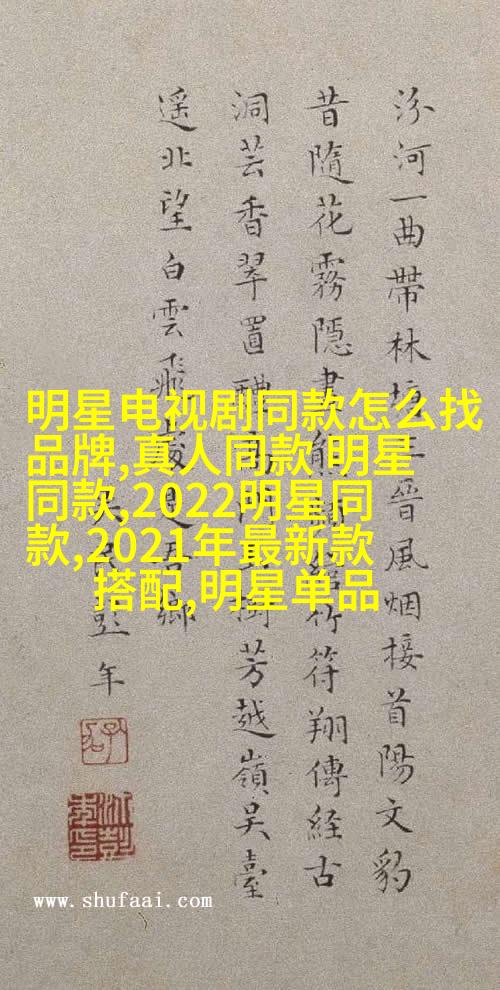 汾河一曲帶林三晉風烟接首陽文豹
昔隨花霧隱竹符翔傳經古
洞芸香翠置芳越嶺吴臺
遥北望白雲飛處是吾鄉
彭年
明星电视剧同款怎么找
品牌,真人同款 明星
同款,2022明星同
款,2021年最新款
搭配,明星单品
www.shufaai.com